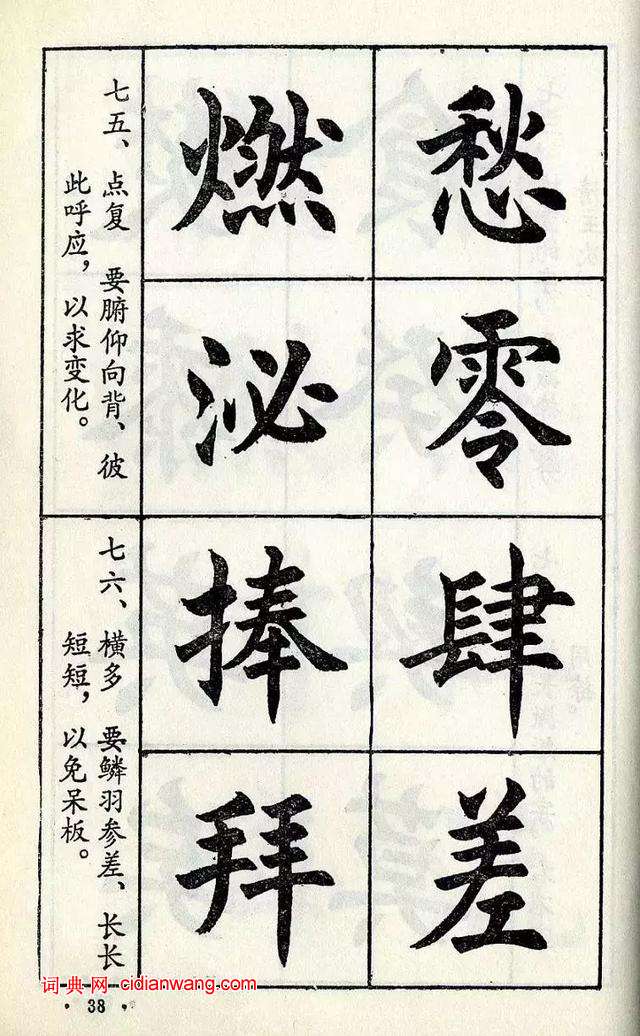 愁
零
燃
泌
七五、点复 要腑仰向背、彼
此呼应，以求变化。
肆
差
捧
拜
七六、横多 要鳞羽参差、长长
短短，以免呆板。
词典网 cidianwang.com
·38·